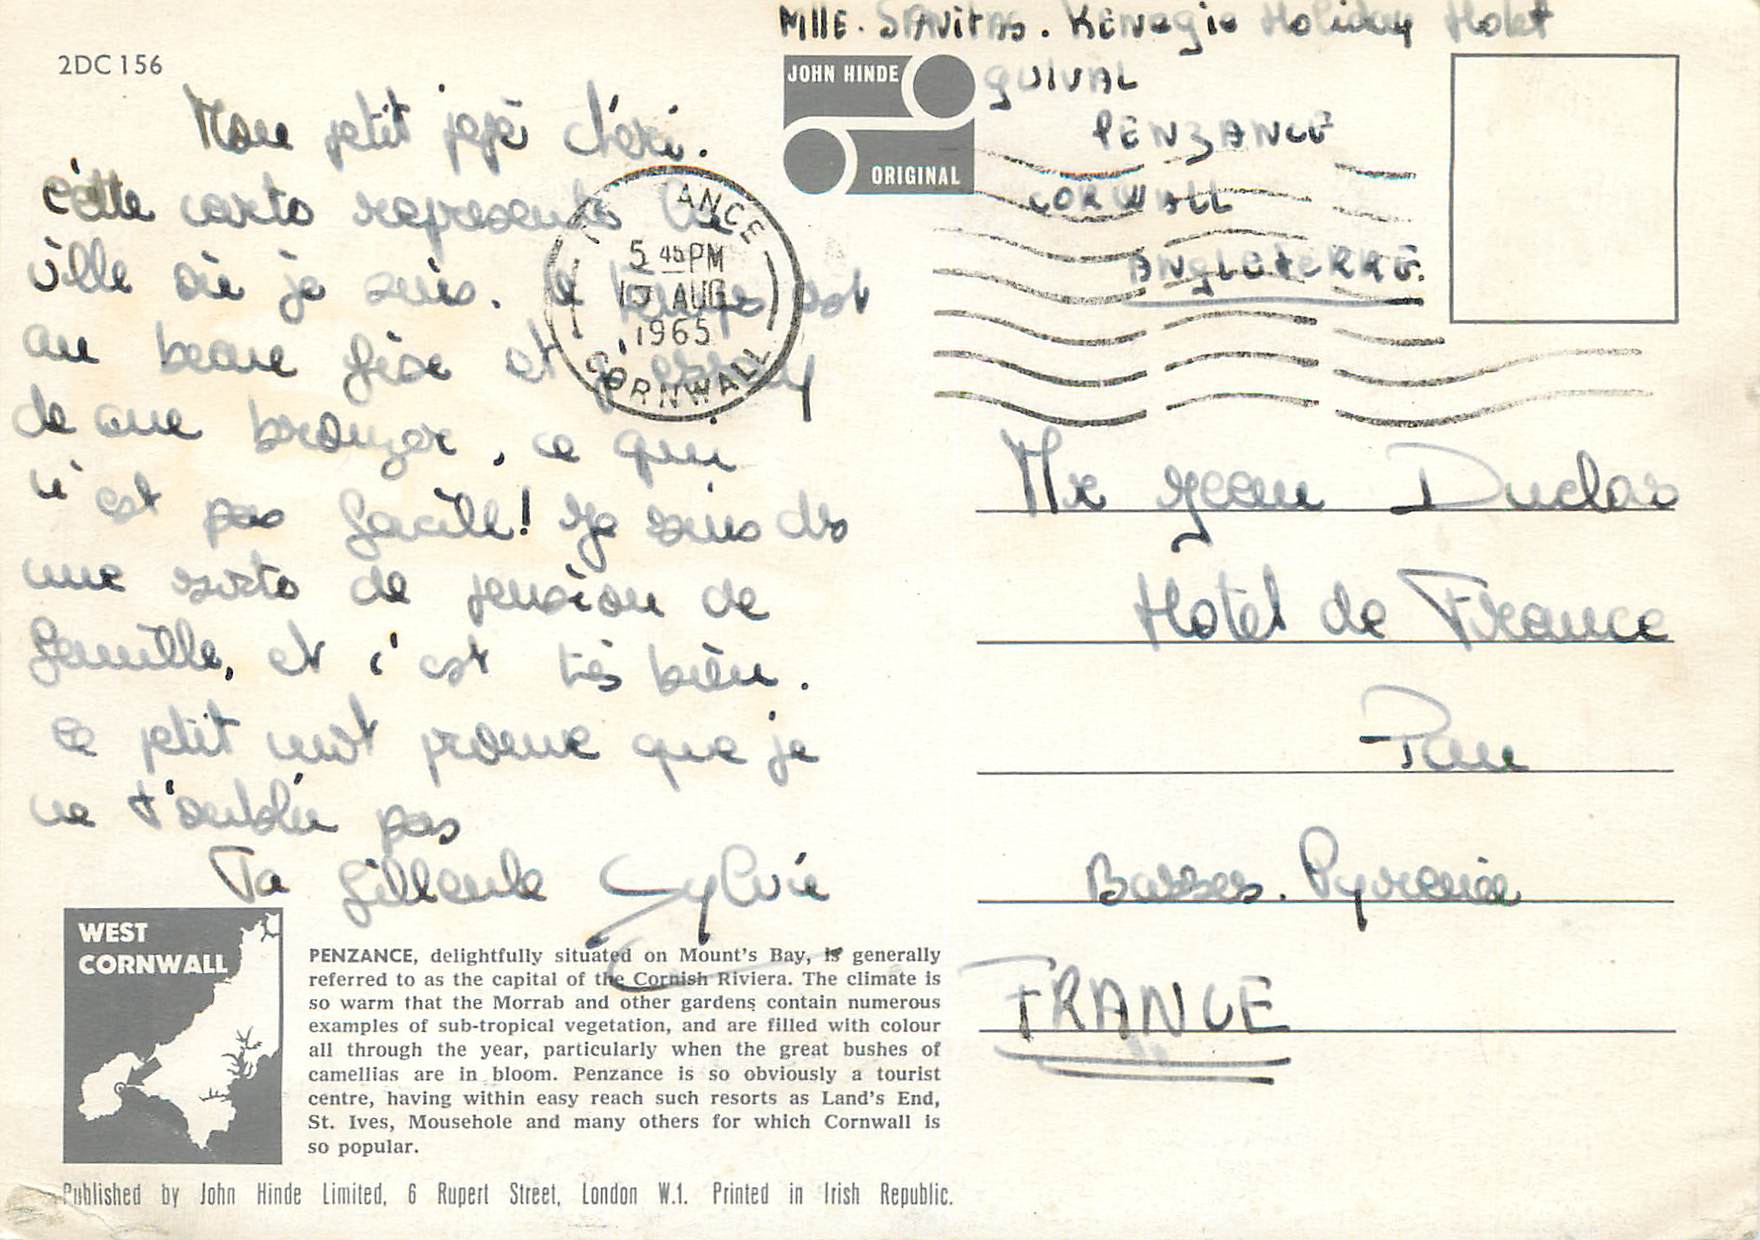 2DC 156
Mlle. STAVITAS. KENEGIE Holiday Hotel
JOHN HINDE
ORIGINAL
GULVAL
PENZANCE
CORWALL
ANGLETERRE.
Mon petit pépé chéri.
cette carte représente la
ville où je suis. le temps est
au beau fixe et j'essay
de me bronzer, ce qui
n'est pas facile! Je suis ds
une sorte de pension de
famille, et c'est très bien.
ce petit mot prouve que je
ne t'oublie pas
Ta filleule Sylvie
PENZANCE
5 45 PM
AUG
1965
CORNWALL
Mr Jean Duclos
Hotel de France
Pau
Basses. Pyrénées
FRANCE
WEST
CORNWALL
PENZANCE, delightfully situated on Mount's Bay, is generally
referred to as the capital of the Cornish Riviera. The climate is
so warm that the Morrab and other gardens contain numerous
examples of sub-tropical vegetation, and are filled with colour
all through the year, particularly when the great bushes of
camellias are in bloom. Penzance is so obviously a tourist
centre, having within easy reach such resorts as Land's End,
St. Ives, Mousehole and many others for which Cornwall is
so popular.
Published by John Hinde Limited, 6 Rupert Street, London W.1. Printed in Irish Republic.